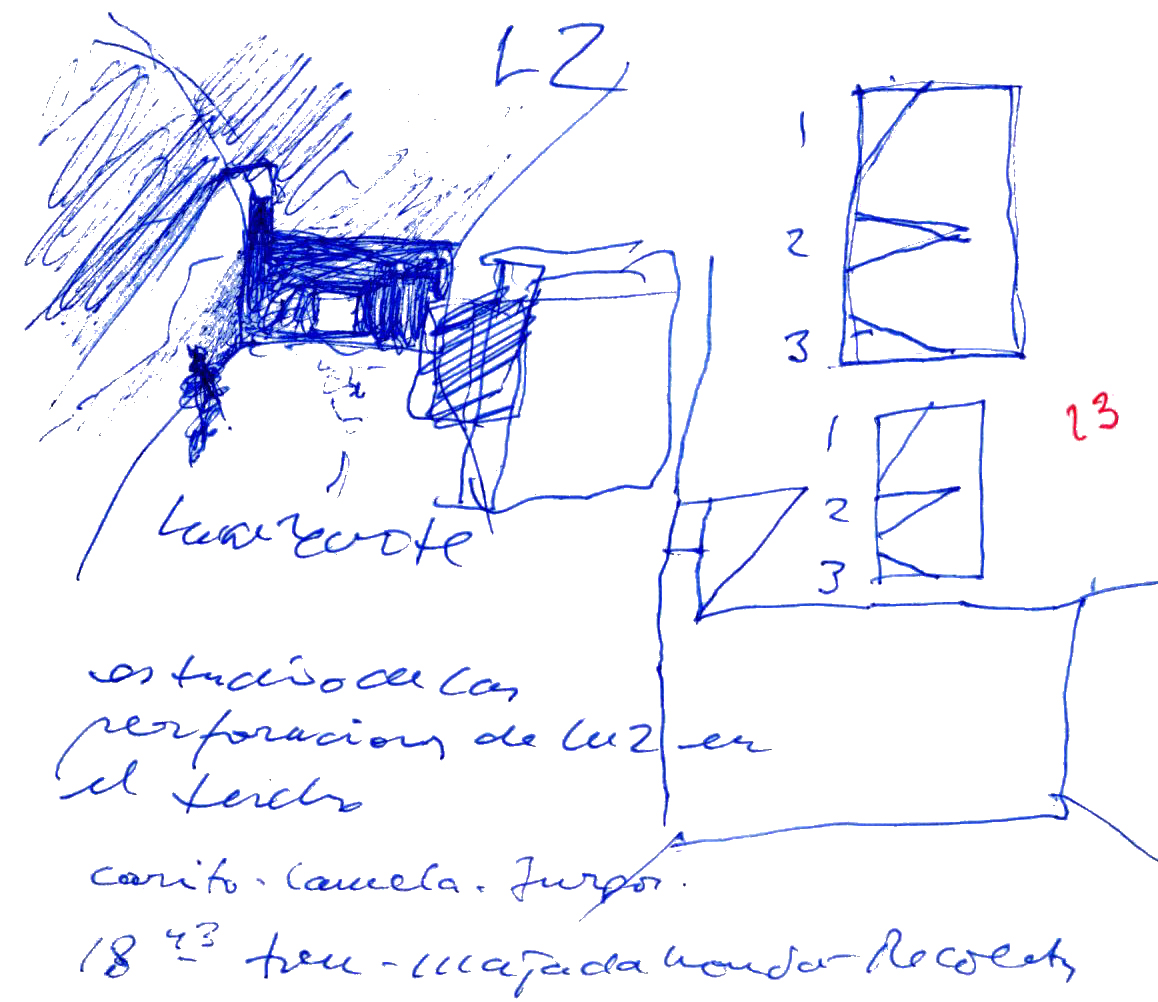 LZ
1
2
3
23
1
2
3
Lanzarote
estudio de las
perforaciones de luz en
el techo
carito. Camela.
18 43 tren - majadahonda - Recoletos